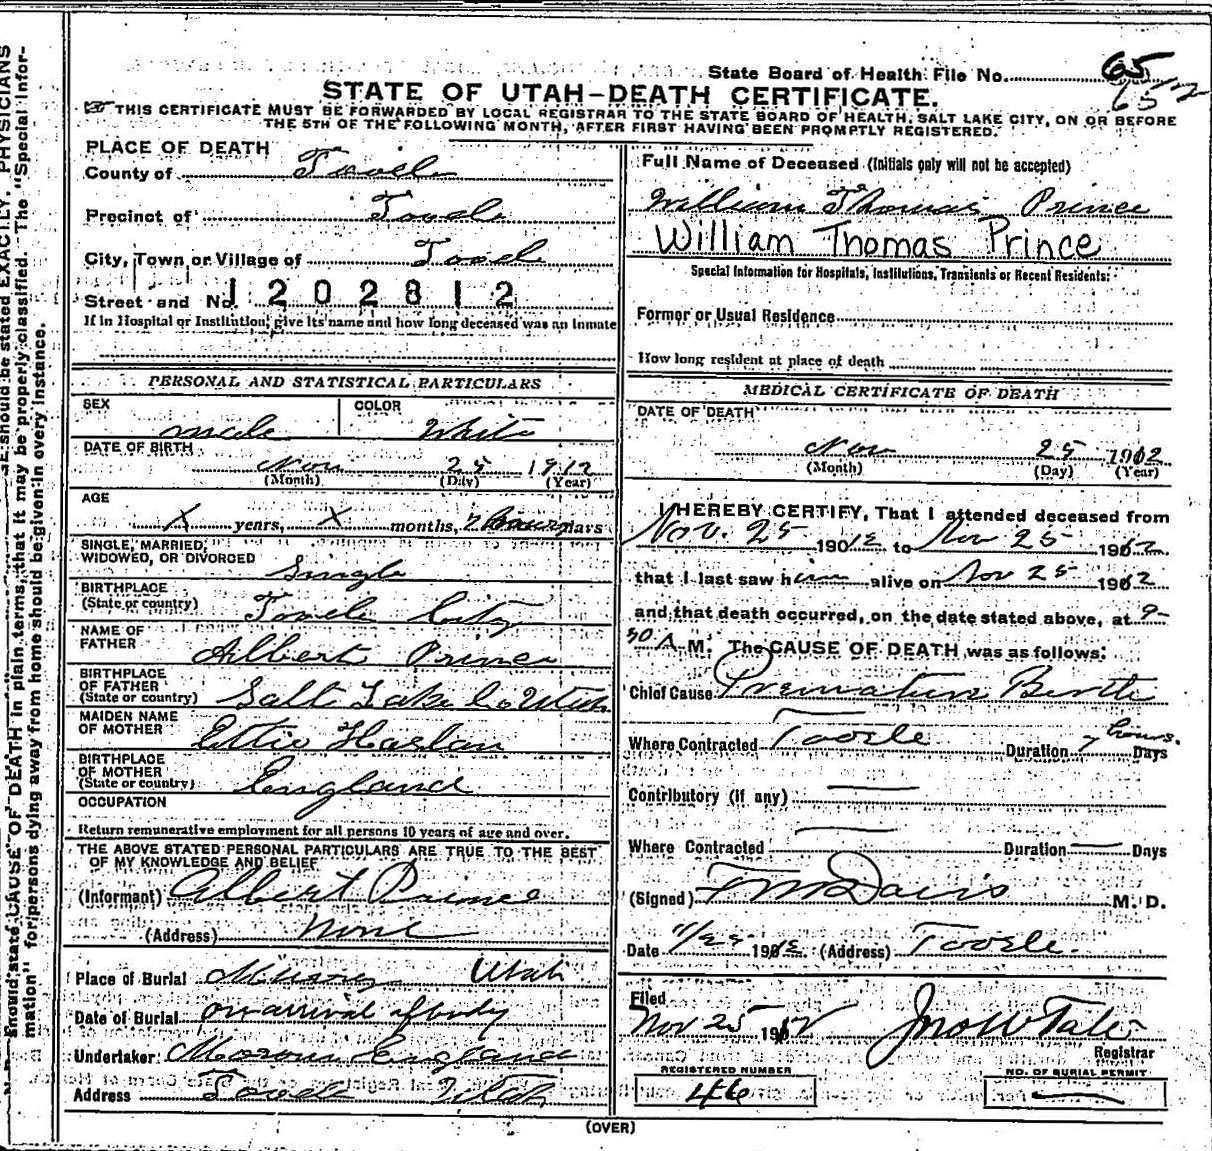 State Board of Health File No. 65
6572
STATE OF UTAH-DEATH CERTIFICATE.
THIS CERTIFICATE MUST BE FORWARDED BY LOCAL REGISTRAR TO THE STATE BOARD OF HEALTH, SALT LAKE CITY, ON OR BEFORE
THE 5TH OF THE FOLLOWING MONTH, AFTER FIRST HAVING BEEN PROMPTLY REGISTERED.
PLACE OF DEATH
County of Tooele
Precinct of Tooele
City, Town or Village of Tooele
Street and No. 1202812
If in Hospital or Institution, give its name and how long deceased was an inmate
PERSONAL AND STATISTICAL PARTICULARS
SEX male COLOR White
DATE OF BIRTH
Nov 25 1912
(Month) (Day) (Year)
AGE
X years, X months, 7 hours days
SINGLE, MARRIED,
WIDOWED, OR DIVORCED Single
BIRTHPLACE
(State or country) Tooele City
NAME OF
FATHER Albert Prince
BIRTHPLACE
OF FATHER
(State or country) Salt Lake Co Utah
MAIDEN NAME
OF MOTHER Ettie Harlan
BIRTHPLACE
OF MOTHER
(State or country) England
OCCUPATION
Return remunerative employment for all persons 10 years of age and over.
THE ABOVE STATED PERSONAL PARTICULARS ARE TRUE TO THE BEST
OF MY KNOWLEDGE AND BELIEF
(Informant) Albert Prince
(Address) None
Place of Burial Utah
Date of Burial on arrival of body
Undertaker England
Address Tooele Utah
Full Name of Deceased (Initials only will not be accepted)
William Thomas Prince
William Thomas Prince
Special Information for Hospitals, Institutions, Transients or Recent Residents:
Former or Usual Residence
How long resident at place of death
MEDICAL CERTIFICATE OF DEATH
DATE OF DEATH
Nov 25 1912
(Month) (Day) (Year)
I HEREBY CERTIFY, That I attended deceased from
Nov. 25 1912 to Nov 25 1912
that I last saw him alive on Nov 25 1912
and that death occurred, on the date stated above, at 9-
30 A-M. The CAUSE OF DEATH was as follows:
Chief Cause Premature Birth
Where Contracted Tooele Duration 7 hours. Days
Contributory (if any) —
Where Contracted — Duration — Days
(Signed) F M Davis M. D.
Date 11/25 1912 (Address) Tooele.
Filed
Nov 25 1912 Jno W Tate
Registrar
REGISTERED NUMBER
46
NO. OF BURIAL PERMIT
—
(OVER)
should be stated EXACTLY. PHYSICIANS
should state CAUSE OF DEATH in plain terms, that it may be properly classified. The "Special Infor-
mation" for persons dying away from home should be given in every instance.